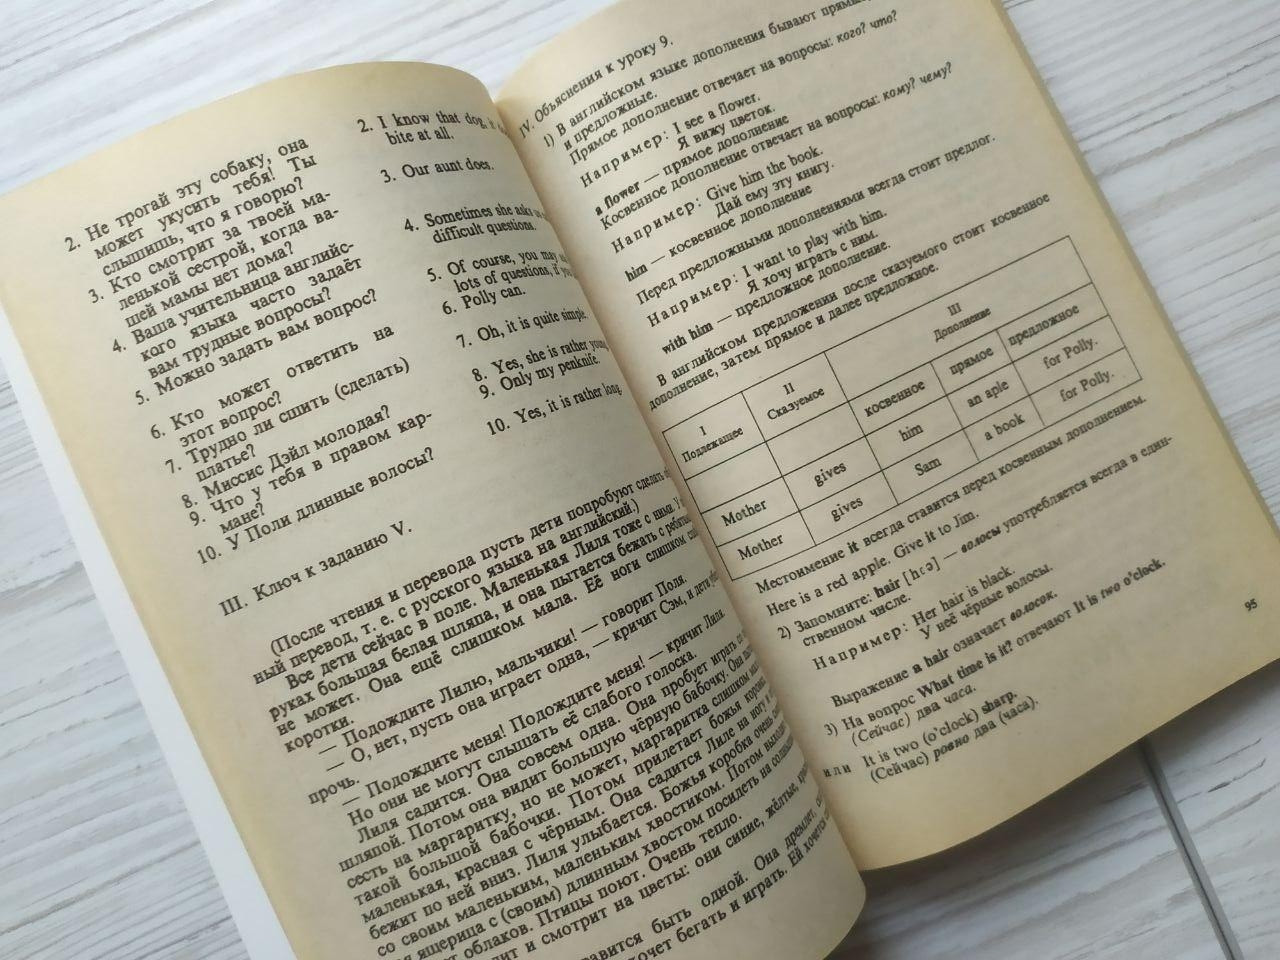 2. Не трогай эту собаку, она
может укусить тебя! Ты
слышишь, что я говорю?
3. Кто смотрит за твоей ма-
ленькой сестрой, когда ва-
шей мамы нет дома?
4. Ваша учительница английс-
кого языка часто задаёт
вам трудные вопросы?
5. Можно задать вам вопрос?
6. Кто может ответить на
этот вопрос?
7. Трудно ли сшить (сделать)
платье?
8. Миссис Дэйл молодая?
9. Что у тебя в правом кар-
мане?
10. У Поли длинные волосы?
2. I know that dog, it
bite at all.
3. Our aunt does.
4. Sometimes she asks us
difficult questions.
5. Of course, you may
lots of questions, if you
6. Polly can.
7. Oh, it is quite simple.
8. Yes, she is rather young.
9. Only my penknife.
10. Yes, it is rather long.
III. Ключ к заданию V.
(После чтения и перевода пусть дети попробуют сделать
ный перевод, т. е. с русского языка на английский.)
Все дети сейчас в поле. Маленькая Лиля тоже с ними. У
руках большая белая шляпа, и она пытается бежать с ребятами
не может. Она ещё слишком мала. Её ноги слишком
коротки.
— Подождите Лилю, мальчики! — говорит Поля.
— О, нет, пусть она играет одна, — кричит Сэм, и дети
прочь.
— Подождите меня! Подождите меня! — кричит Лиля.
Но они не могут слышать её слабого голоска.
Лиля садится. Она совсем одна. Она пробует играть со
шляпой. Потом она видит большую чёрную бабочку. Она
сесть на маргаритку, но не может, маргаритка слишком
такой большой бабочки. Потом прилетает божья
маленькая, красная с чёрным. Она садится Лиле на ногу и
бежит по ней вниз. Лиля улыбается. Божья коробка очень
со своим маленьким, маленьким хвостиком. Потом
ящерица с (своим) длинным хвостом посидеть на
облаков. Птицы поют. Очень тепло.
и смотрит на цветы: они синие, жёлтые,
быть одной. Она дремлет,
бегать и играть. Ей хочется
IV. Объяснения к уроку 9.
1) В английском языке дополнения бывают
и предложные.
Прямое дополнение отвечает на вопросы: кого? что?
Например: I see a flower.
Я вижу цветок.
a flower — прямое дополнение
Косвенное дополнение отвечает на вопросы: кому? чему?
Например: Give him the book.
Дай ему эту книгу.
him — косвенное дополнение
Перед предложными дополнениями всегда стоит предлог.
Например: I want to play with him.
Я хочу играть с ним.
with him — предложное дополнение.
В английском предложении после сказуемого стоит косвенное
дополнение, затем прямое и далее предложное.
I
Подлежащее
II
Сказуемое
III
Дополнение
косвенное прямое предложное
Mother gives him an aple for Polly.
Mother gives Sam a book for Polly.
Местоимение it всегда ставится перед косвенным дополнением.
Here is a red apple. Give it to Jim.
2) Запомните: hair [hɛə] — волосы употребляется всегда в един-
ственном числе.
Например: Her hair is black.
У неё чёрные волосы.
Выражение a hair означает волосок.
3) На вопрос What time is it? отвечают It is two o'clock.
(Сейчас) два часа.
или It is two (o'clock) sharp.
(Сейчас) ровно два (часа).
95